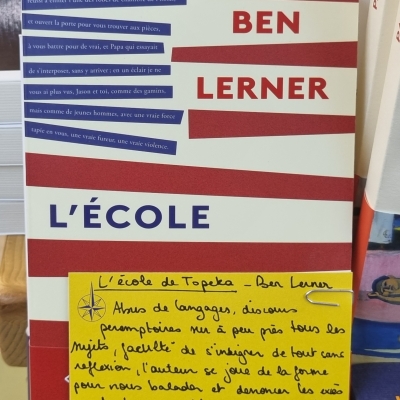 et ouvert la porte pour vous trouver aux pièces,
à vous battre pour de vrai, et Papa qui essayait
de s'interposer, sans y arriver ; en un éclair je ne
vous ai plus vus, Jason et toi, comme des gamins,
mais comme de jeunes hommes, avec une vraie force
tapie en vous, une vraie fureur, une vraie violence.
BEN
LERNER
L'ÉCOLE
L'école de Topeka - Ben Lerner
Abus de langages, discours
péremptoires sur à peu près tous les
sujets, faculté de s'indigner de tout sans
réflexion, l'auteur se joue de la forme
pour nous balader et dénoncer les